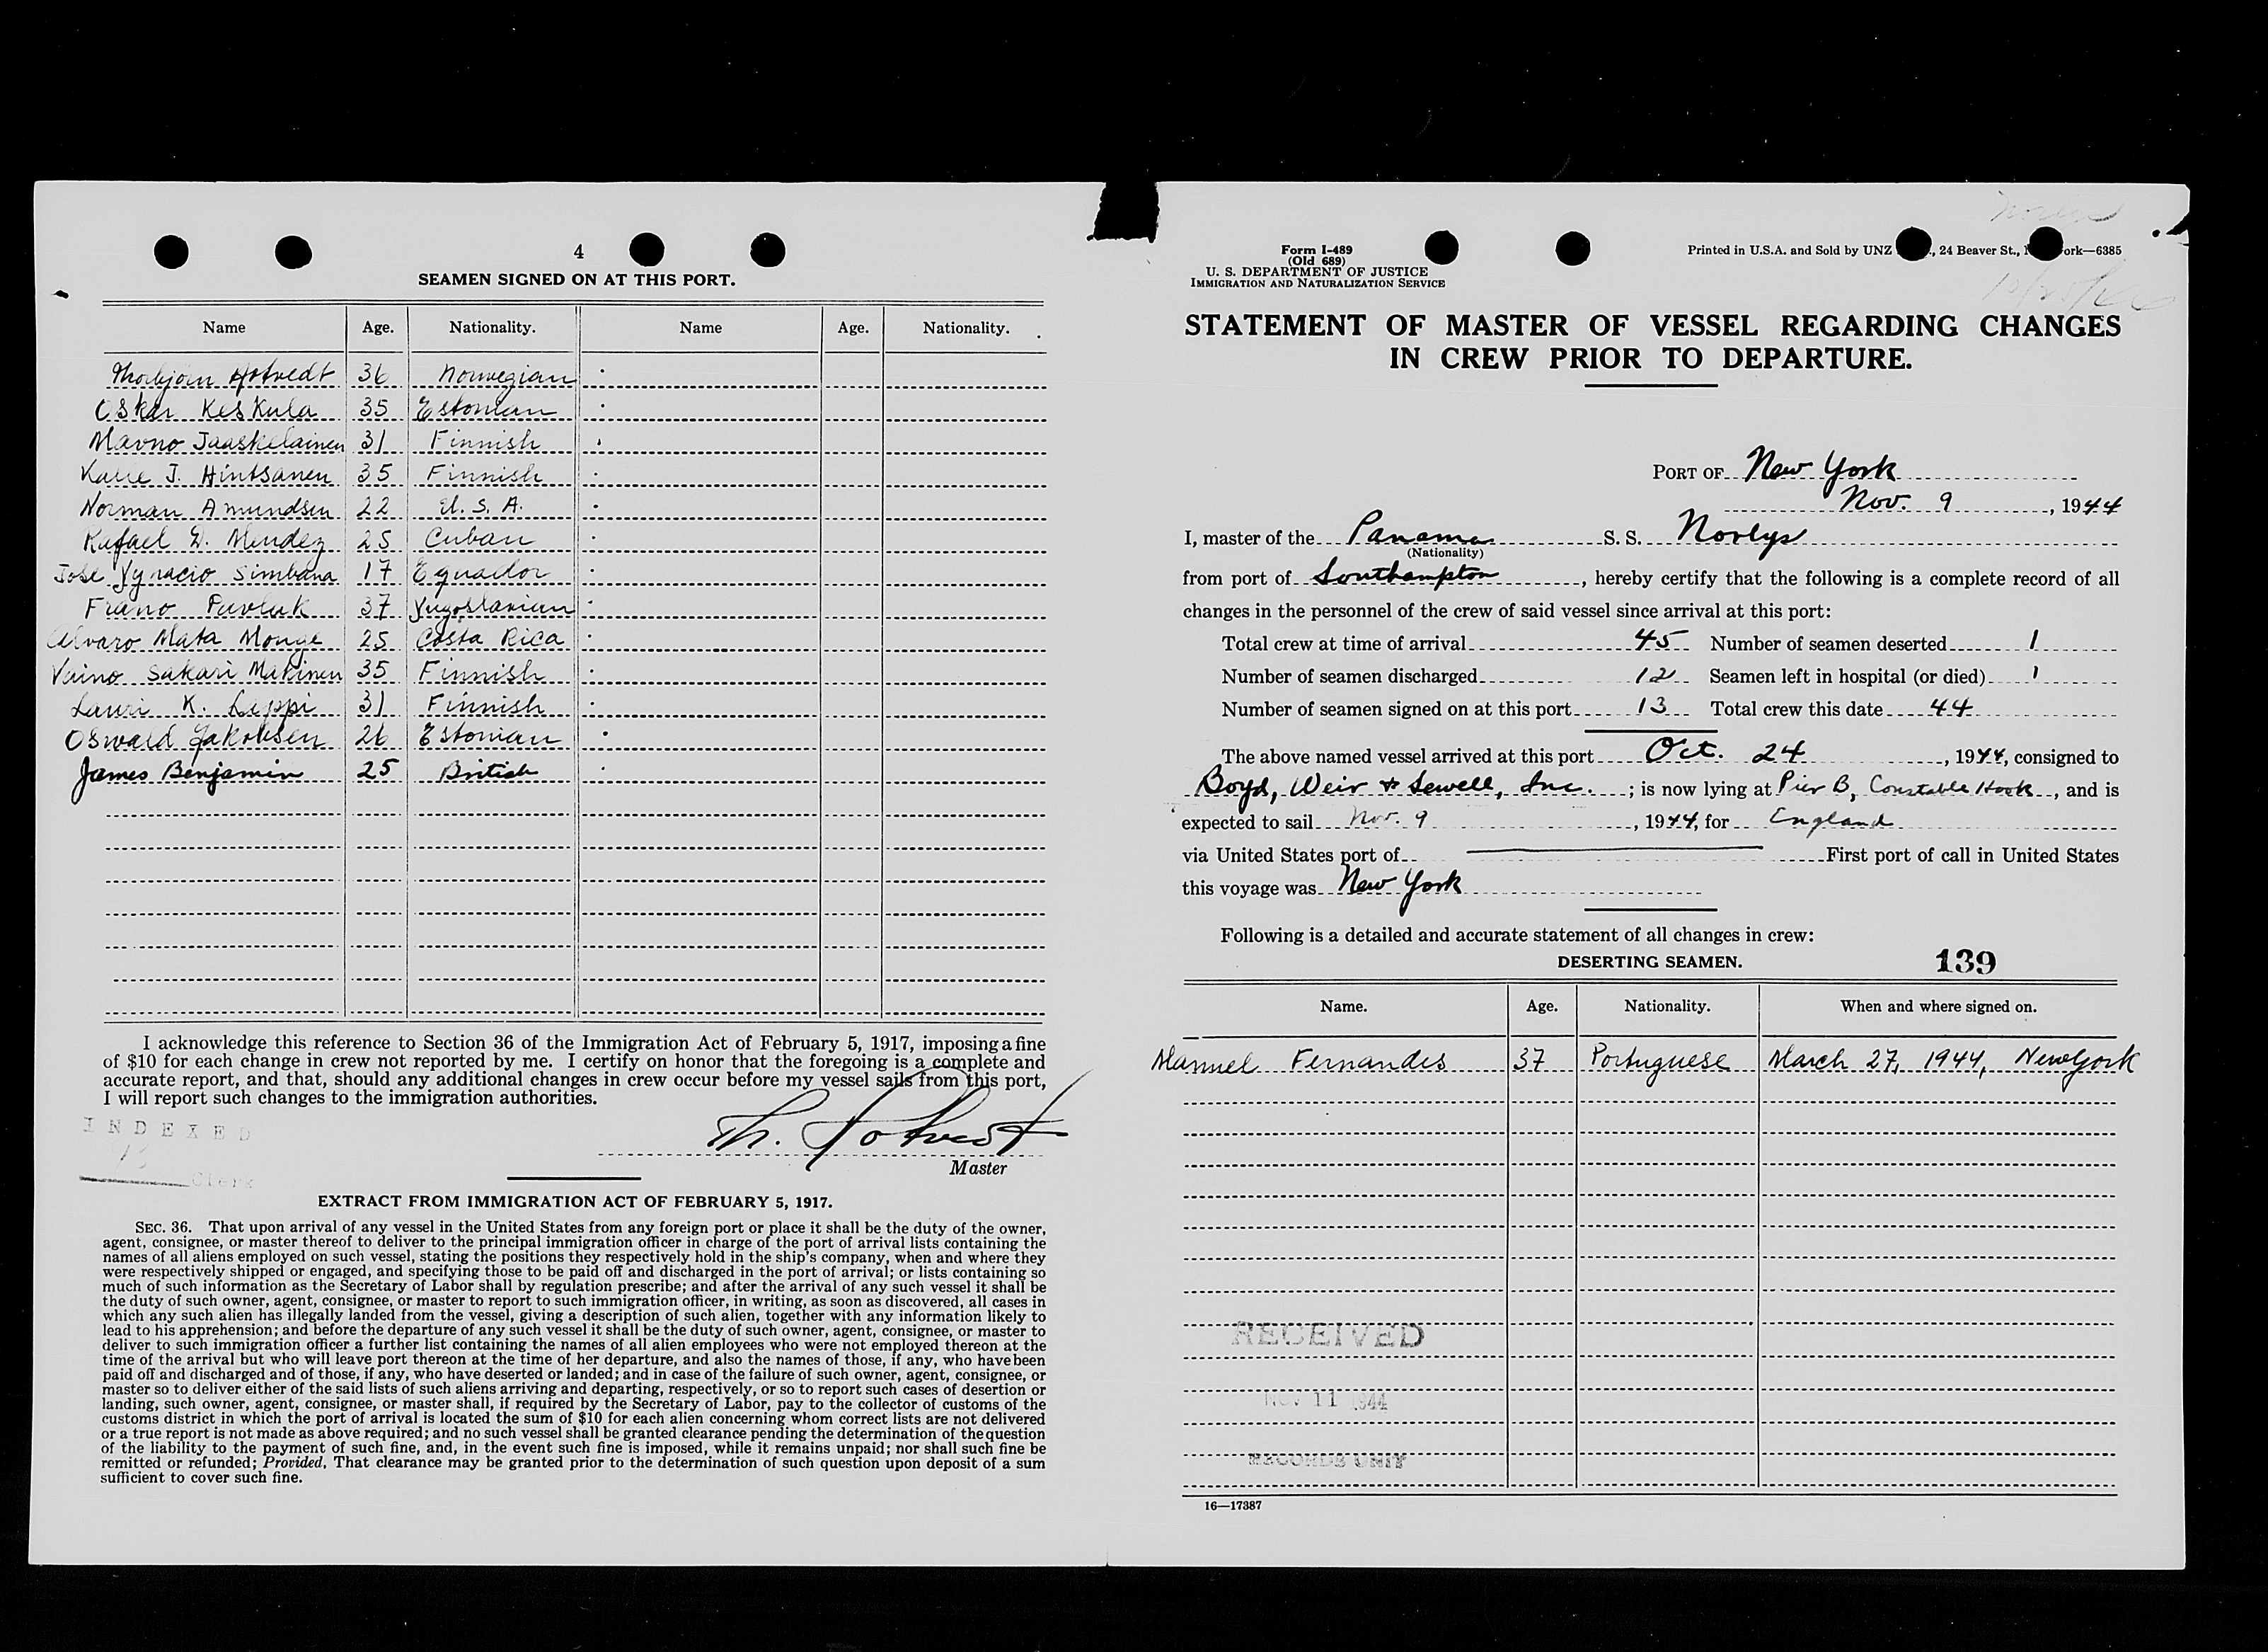 4
SEAMEN SIGNED ON AT THIS PORT.
Name Age. Nationality. Name Age. Nationality.
Thorbjorn Hotvedt 36 Norwegian
Oskar Keskula 35 Estonian
Mavno Jaaskelainen 31 Finnish
Kalle J. Hintsanen 35 Finnish
Norman Amundsen 22 U. S. A.
Rafael D. Mendez 25 Cuban
Jose Ygnacio Simbana 17 Equador
Frano Pavluk 37 Yugoslavian
Alvaro Mata Monge 25 Costa Rica
Vaino Sakari Makinen 35 Finnish
Lauri K. Leppi 31 Finnish
Oswald Jakobsen 26 Estonian
James Benjamin 25 British
I acknowledge this reference to Section 36 of the Immigration Act of February 5, 1917, imposing a fine
of $10 for each change in crew not reported by me. I certify on honor that the foregoing is a complete and
accurate report, and that, should any additional changes in crew occur before my vessel sails from this port,
I will report such changes to the immigration authorities.
INDEXED
Clerk
Th. Hotvedt
Master
EXTRACT FROM IMMIGRATION ACT OF FEBRUARY 5, 1917.
SEC. 36. That upon arrival of any vessel in the United States from any foreign port or place it shall be the duty of the owner,
agent, consignee, or master thereof to deliver to the principal immigration officer in charge of the port of arrival lists containing the
names of all aliens employed on such vessel, stating the positions they respectively hold in the ship's company, when and where they
were respectively shipped or engaged, and specifying those to be paid off and discharged in the port of arrival; or lists containing so
much of such information as the Secretary of Labor shall by regulation prescribe; and after the arrival of any such vessel it shall be
the duty of such owner, agent, consignee, or master to report to such immigration officer, in writing, as soon as discovered, all cases in
which any such alien has illegally landed from the vessel, giving a description of such alien, together with any information likely to
lead to his apprehension; and before the departure of any such vessel it shall be the duty of such owner, agent, consignee, or master to
deliver to such immigration officer a further list containing the names of all alien employees who were not employed thereon at the
time of the arrival but who will leave port thereon at the time of her departure, and also the names of those, if any, who have been
paid off and discharged and of those, if any, who have deserted or landed; and in case of the failure of such owner, agent, consignee, or
master so to deliver either of the said lists of such aliens arriving and departing, respectively, or so to report such cases of desertion or
landing, such owner, agent, consignee, or master shall, if required by the Secretary of Labor, pay to the collector of customs of the
customs district in which the port of arrival is located the sum of $10 for each alien concerning whom correct lists are not delivered
or a true report is not made as above required; and no such vessel shall be granted clearance pending the determination of the question
of the liability to the payment of such fine, and, in the event such fine is imposed, while it remains unpaid; nor shall such fine be
remitted or refunded; Provided, That clearance may be granted prior to the determination of such question upon deposit of a sum
sufficient to cover such fine.
Form I-489
(Old 689)
U. S. DEPARTMENT OF JUSTICE
IMMIGRATION AND NATURALIZATION SERVICE
Printed in U.S.A. and Sold by UNZ , 24 Beaver St., ork—6385
STATEMENT OF MASTER OF VESSEL REGARDING CHANGES
IN CREW PRIOR TO DEPARTURE.
PORT OF New York
Nov. 9, 1944
I, master of the Panama S. S. Norlys
(Nationality)
from port of Southampton, hereby certify that the following is a complete record of all
changes in the personnel of the crew of said vessel since arrival at this port:
Total crew at time of arrival 45 Number of seamen deserted 1
Number of seamen discharged 12 Seamen left in hospital (or died) 1
Number of seamen signed on at this port 13 Total crew this date 44
The above named vessel arrived at this port Oct. 24, 1944, consigned to
Boyd, Weir & Sewell, Inc.; is now lying at Pier B, Constable Hook, and is
expected to sail Nov. 9, 1944, for England
via United States port of First port of call in United States
this voyage was New York
Following is a detailed and accurate statement of all changes in crew:
DESERTING SEAMEN. 139
Name. Age. Nationality. When and where signed on.
Manuel Fernandes 37 Portuguese March 27, 1944, New York
RECEIVED
NOV 11 1944
RECORDS UNIT
16—17387